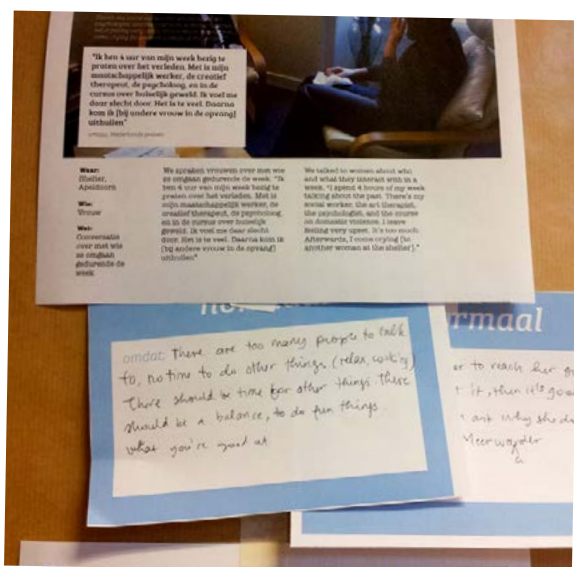 "Ik ben 4 uur van mijn week bezig te
praten over het verleden. Met is mijn
maatschappelijk werker, de creatief
therapeut, de psycholoog, en in de
cursus over huiselijk geweld. Ik voel me
daar slecht door. Het is te veel. Daarna
kom ik [bij andere vrouw in de opvang]
uithuilen"
Waar:
Shelter,
Apeldoorn
Wie:
Vrouw
Wat:
Conversatie
over met wie
ze omgaan
gedurende de
week
We spraken vrouwen over met wie
ze omgaan gedurende de week. "Ik
ben 4 uur van mijn week bezig te
praten over het verleden. Met is
mijn maatschappelijk werker, de
creatief therapeut, de psycholoog,
en in de cursus over huiselijk
geweld. Ik voel me daar slecht
door. Het is te veel. Daarna kom ik
[bij andere vrouw in de opvang]
uithuilen"
We talked to women about who
and what they interact with in a
week. "I spend 4 hours of my week
talking about the past. There's my
social worker, the art therapist,
the psychologist, and the course
on domestic violence. I leave
feeling very upset. It's too much.
Afterwards, I come crying [to
another woman at the shelter]."
omdat: There are too many people to talk
to, no time to do other things (relax, cooking)
There should be time for other things. There
should be a balance, to do fun things.
what you're good at
rmaal
er to reach her
it, then it's good
ask why she